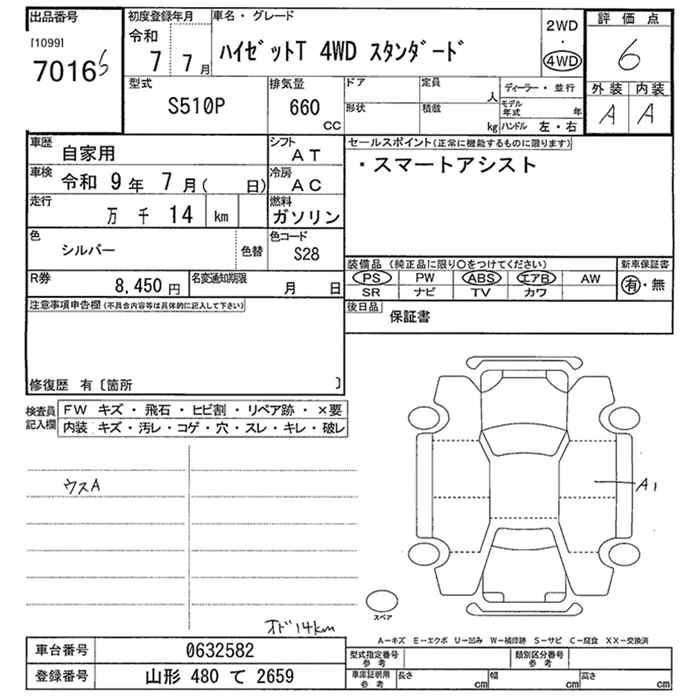 出品番号
[1099]
7016 S
初度登録年月
令和
7 7月
車名・グレード
ﾊｲｾﾞｯﾄT 4WD ｽﾀﾝﾀﾞｰﾄﾞ
2WD
・
4WD
評価点
6
外装 内装
A A
型式
S510P
排気量
660
CC
ドア
形状
定員
人
積載
kg
ディーラー・並行
モデル年式 年
ハンドル 左・右
車歴
自家用
シフト
AT
車検
令和 9年 7月( 日)
冷房
AC
走行
万 千 14 km
燃料
ガソリン
色
シルバー
色替
色コード
S28
R券
8,450円
名変通知期限
月 日
セールスポイント(正常に機能するものに限ります)
・スマートアシスト
装備品(純正品に限り○をつけてください)
PS PW ABS エアB AW
SR ナビ TV カワ
新車保証書
有・無
後日品
保証書
注意事項申告欄(不具合内容等は具体的に記入して下さい)
修復歴 有〔箇所 〕
検査員記入欄
FW キズ・飛石・ヒビ割・リペア跡・×要
内装 キズ・汚レ・コゲ・穴・スレ・キレ・破レ
ウスA
A1
オド14km
スペア
A－キズ E－エクボ U－凹み W－補修跡 S－サビ C－腐食 XX－交換済
車台番号
0632582
登録番号
山形 480 て 2659
型式指定番号
参考
類別区分番号
参考
車庫証明用
参考
長さ cm
幅 cm
高さ cm